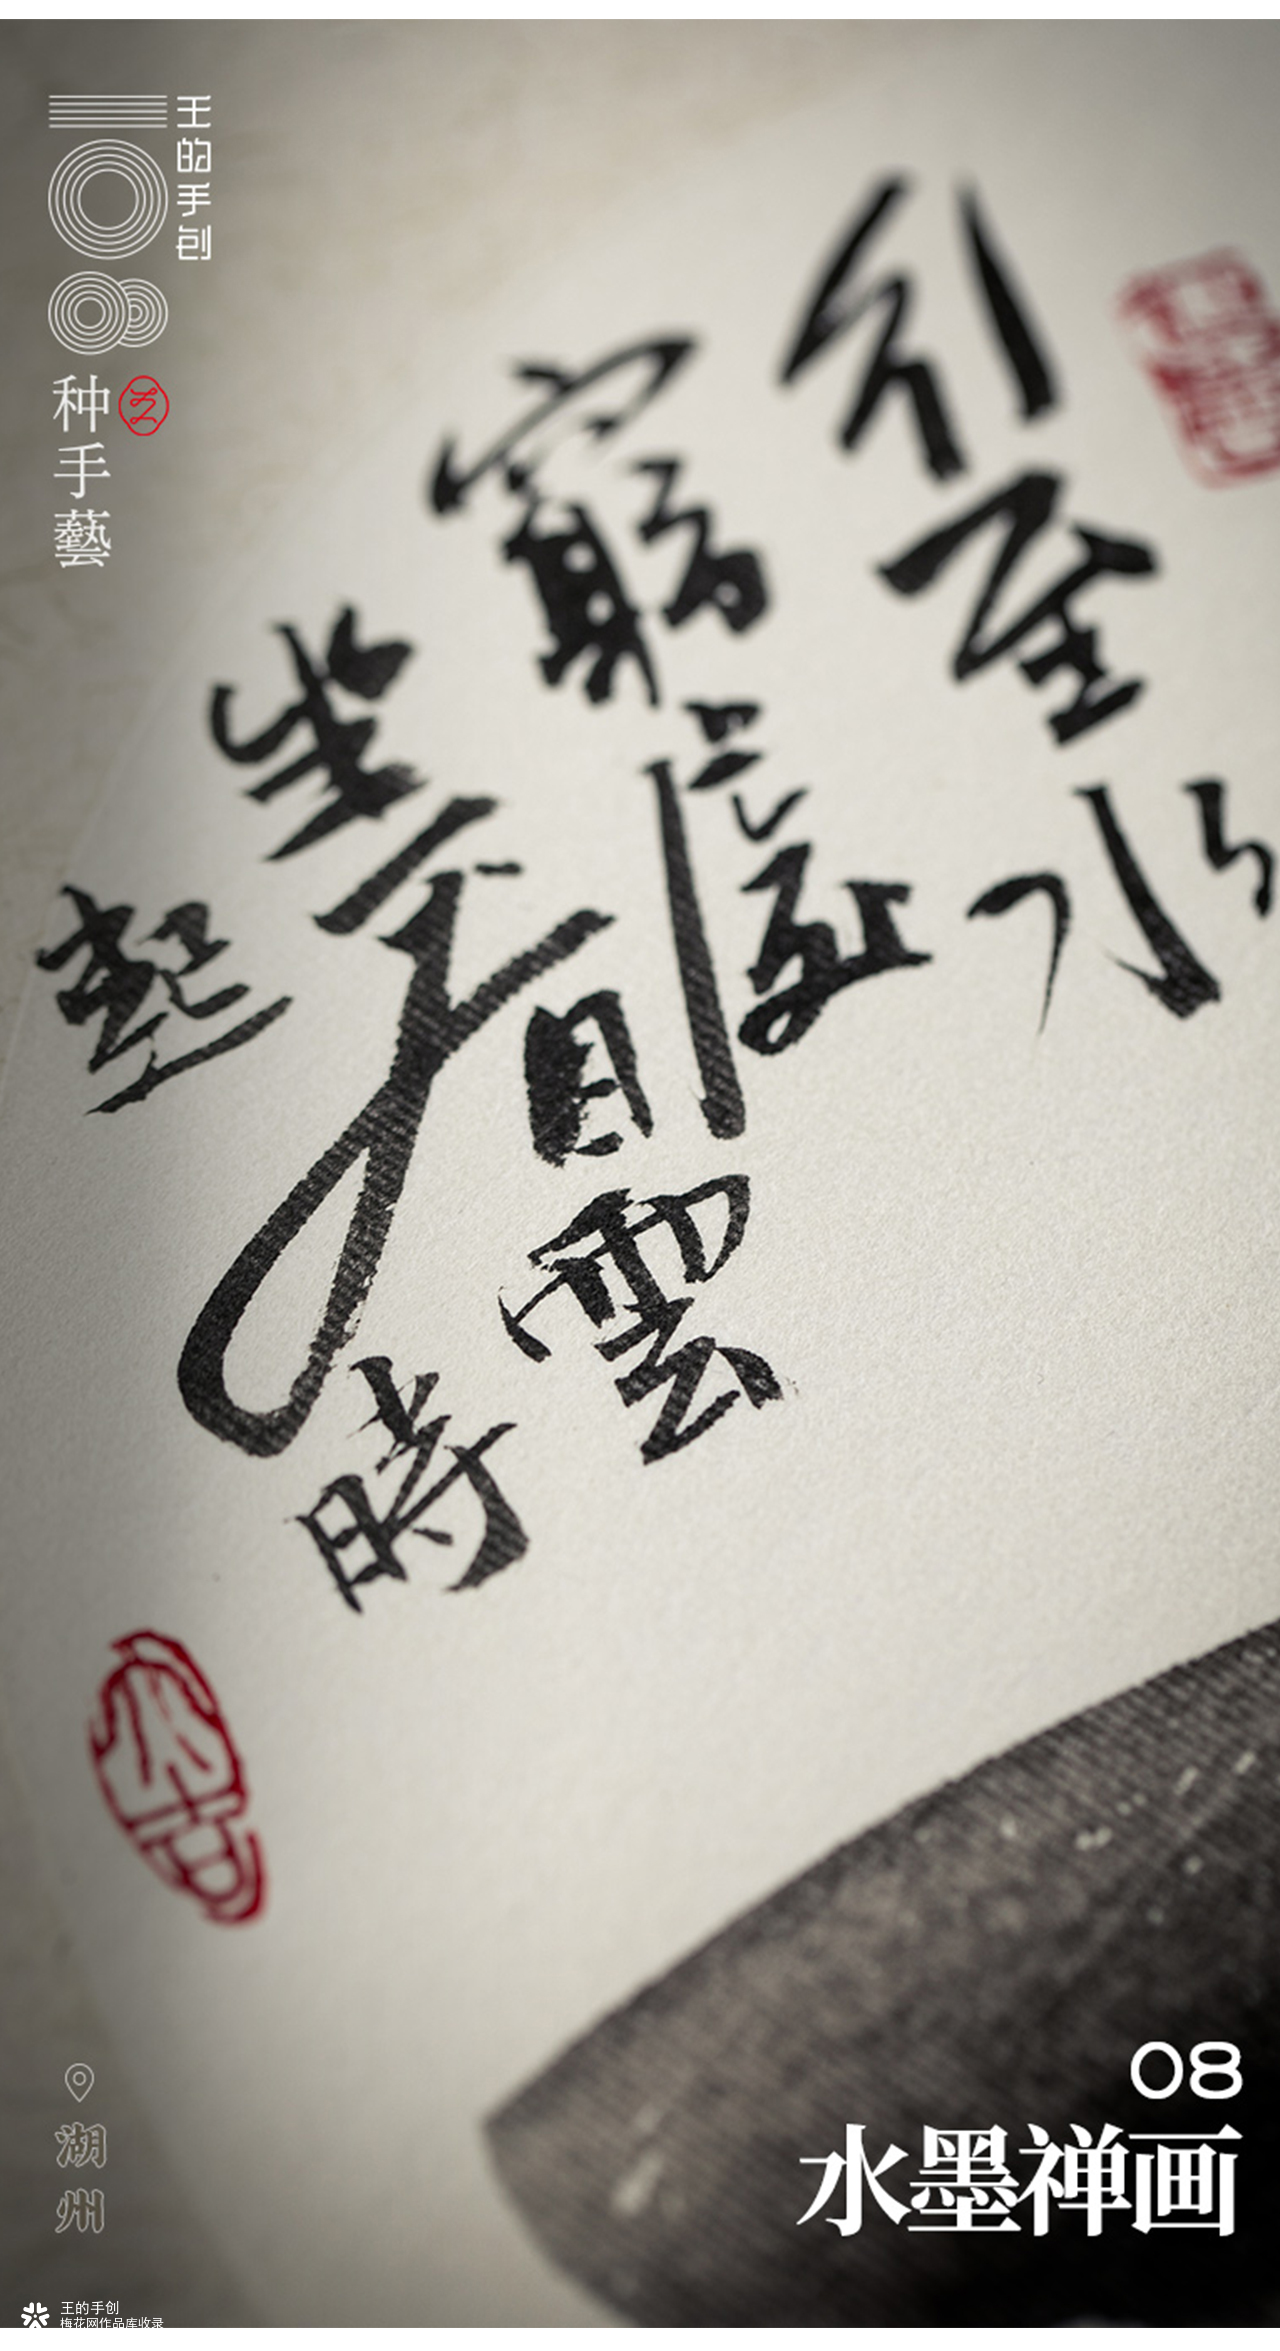 王的手创
108
种手藝
行至水
窮處
坐看雲
起時
湖州
08
水墨禅画
王的手创
梅花网作品库收录